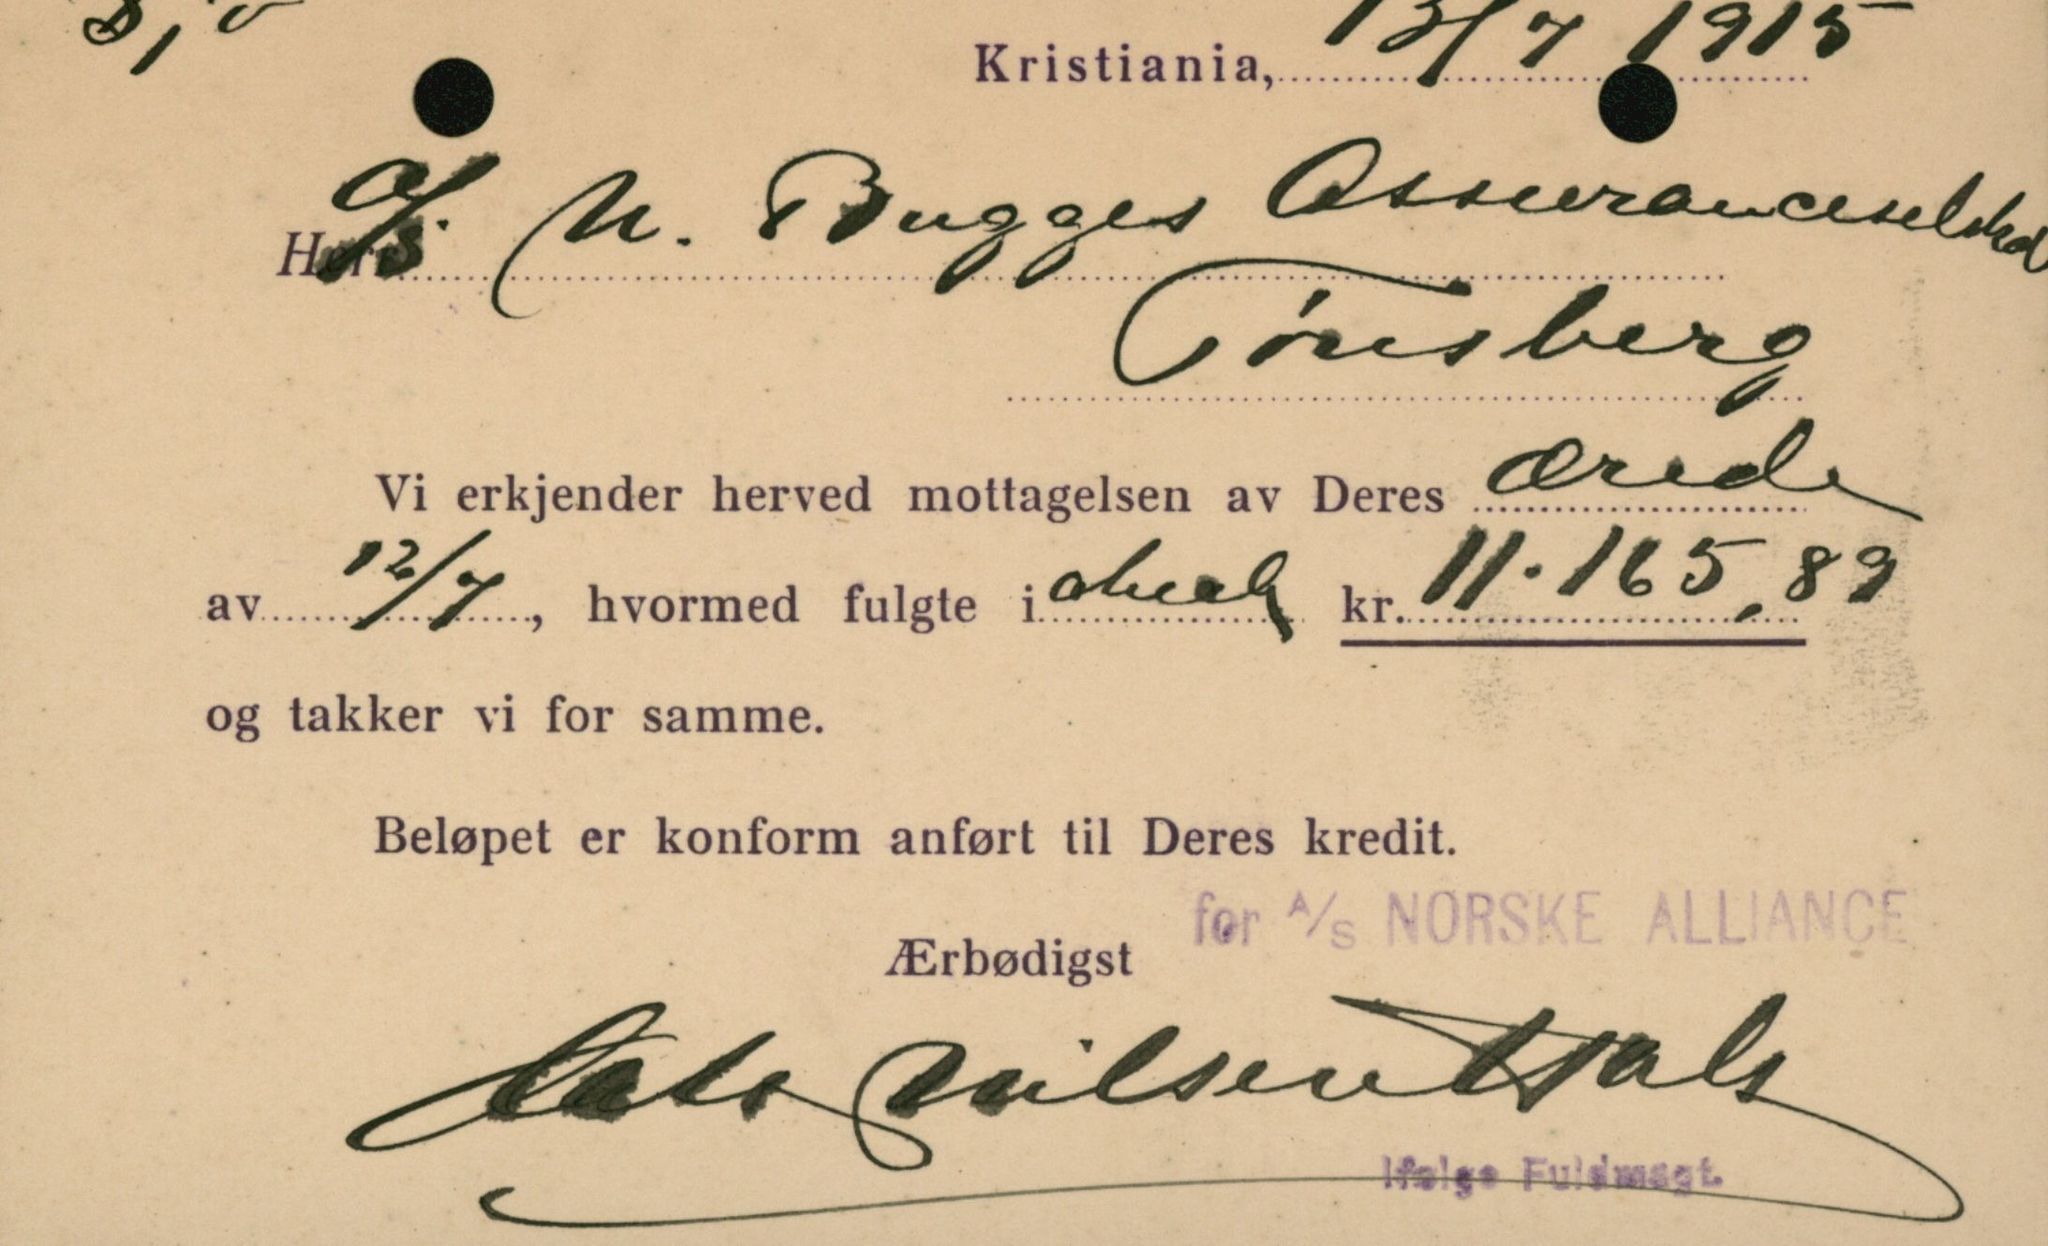 Kristiania, 13/7 1915
Herr A/S. N. Bugges Assuranceselskab
Tønsberg
Vi erkjender herved mottagelsen av Deres ærede
av 12/7, hvormed fulgte i check kr. 11.165,89
og takker vi for samme.
Beløpet er konform anført til Deres kredit.
for A/S NORSKE ALLIANCE
Ærbødigst
Nilsen
Ifølge Fuldmagt.